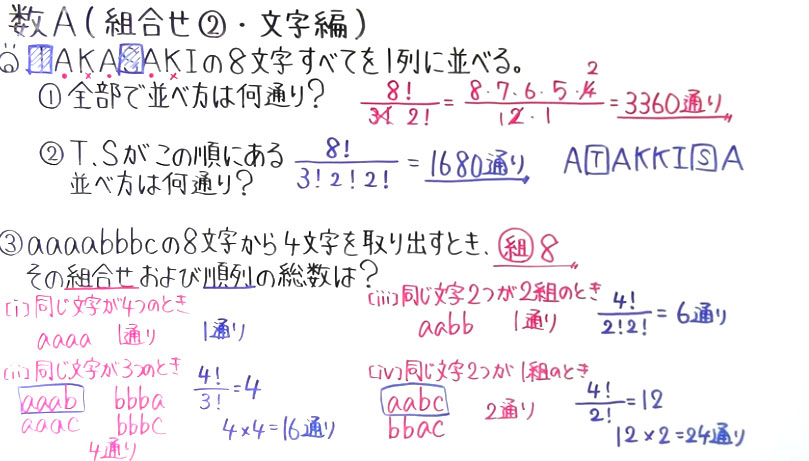 数A(組合せ②・文字編)
◎ TAKASAKIの8文字すべてを1列に並べる。
① 全部で並べ方は何通り? 8!/3! 2! = 8・7・6・5・4 2/2・1 = 3360通り
② T、Sがこの順にある 8!/3! 2! 2! = 1680通り ATAKKISA
並べ方は何通り?
③ aaaabbbcの8文字から4文字を取り出すとき、 組 8
その組合せおよび順列の総数は?
(i) 同じ文字が4つのとき
aaaa 1通り 1通り
(ii) 同じ文字が3つのとき 4!/3! = 4
aaab bbba
aaac bbbc 4×4=16通り
4通り
(iii) 同じ文字2つが2組のとき
aabb 1通り 4!/2!2! = 6通り
(iv) 同じ文字2つが1組のとき
aabc 2通り 4!/2! = 12
bbac 12×2=24通り